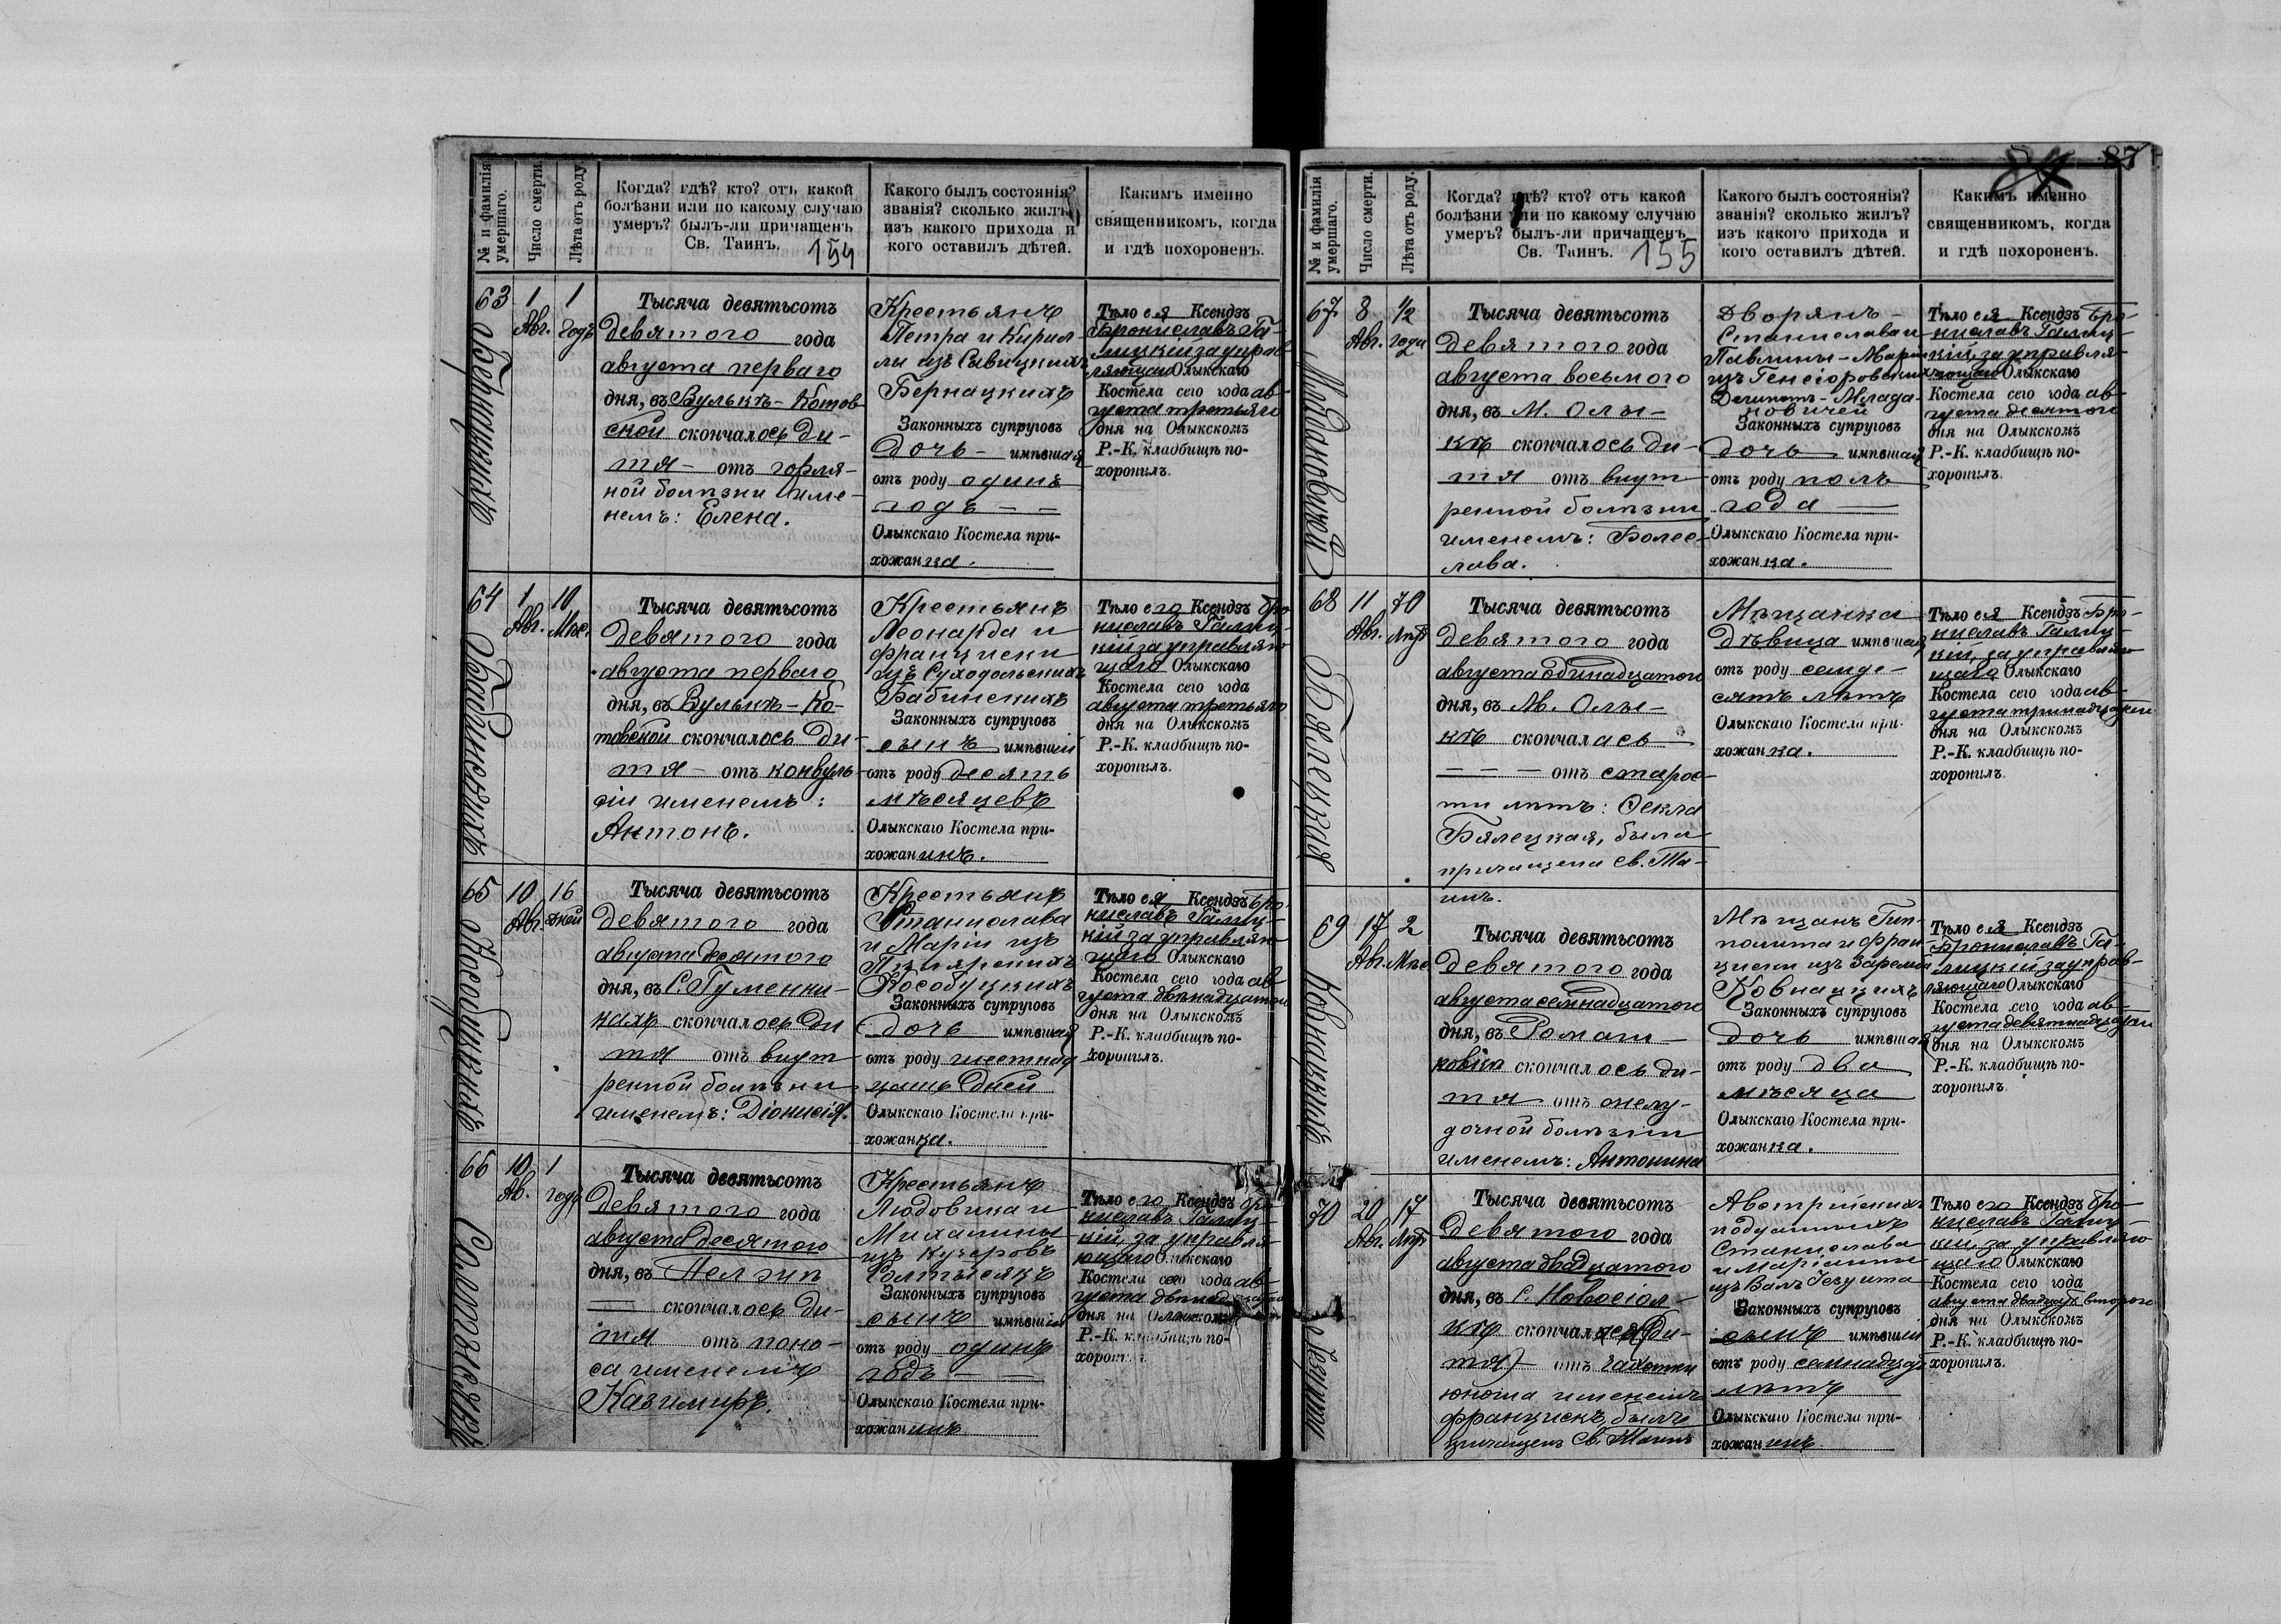 № и фамилія умершаго.
Число смерти.
Лѣта отъ роду.
Когда? гдѣ? кто? отъ какой
болѣзни или по какому случаю
умеръ? былъ-ли причащенъ
Св. Таинъ.
154
Какого былъ состоянія?
званія? сколько жилъ?
изъ какого прихода и
кого оставилъ дѣтей.
Какимъ именно
священникомъ, когда
и гдѣ похороненъ.
63
Бернацкихъ
1
Авг.
1
годъ
Тысяча девятьсотъ
девятого года
августа перваго
дня, въ Вулькѣ-Котов-
ской скончалось ди-
тя - отъ горля-
ной болѣзни име-
немъ: Елена.
Крестьянъ
Петра и Кирил-
ли изъ Савицкихъ
Бернацкихъ
Законныхъ супруговъ
дочь - имѣвшая
отъ роду одинъ
годъ - -
Олыкскаго Костела при-
хожанка.
Тѣло ея Ксендзъ
Брониславъ Га-
лицкій за управ-
ляющаго Олыкскаго
Костела сего года ав-
густа третьяго
дня на Олыкскомъ
Р.-К. кладбищѣ по-
хоронилъ.
64
Бабинскихъ
1
Авг.
10
Мѣс.
Тысяча девятьсотъ
девятого года
августа перваго
дня, въ Вулькѣ-Ко-
товской скончалось ди-
тя - отъ конвуль-
сіи именемъ:
Антонъ.
Крестьянъ
Леонарда и
Франциски
изъ Суходольскихъ
Бабинскихъ
Законныхъ супруговъ
сынъ имѣвшій
отъ роду десять
мѣсяцевъ
Олыкскаго Костела при-
хожанинъ.
Тѣло его Ксендзъ Бро-
ниславъ Галиц-
кій за управляю-
щаго Олыкскаго
Костела сего года
августа третьяго
дня на Олыкскомъ
Р.-К. кладбищѣ по-
хоронилъ.
65
Кособуцкихъ
10
Авг.
16
дней
Тысяча девятьсотъ
девятого года
августа десятого
дня, въ С. Гуменни-
кахъ скончалось ди
тя отъ внут
ренной болѣзни
именемъ: Діонисія.
Крестьянъ
Станислава
и Маріи изъ
Кособуцкихъ
Законныхъ супруговъ
дочь имѣвшая
отъ роду шестнад
цать дней
Олыкскаго Костела при-
хожанка.
Тѣло ея Ксендзъ Бро-
ниславъ Галиц-
кій за управляю-
щаго Олыкскаго
Костела сего года ав-
густа двѣнадцатого
дня на Олыкскомъ
Р.-К. кладбищѣ по-
хоронилъ.
66
Солтысякъ
10
Ав.
1
годъ
Тысяча девятьсотъ
девятого года
августа десятого
дня, въ Пелзип
— скончалось ди-
тя отъ поно-
са именемъ
Казимиръ.
Крестьянъ
Людовика и
Михалины
изъ Кучеровъ
Солтысякъ
Законныхъ супруговъ
сынъ имѣвшій
отъ роду одинъ
годъ - -
Олыкскаго Костела при-
хожанинъ
Тѣло его Ксендзъ Бро-
ниславъ Галиц-
кій, за управля-
ющаго Олыкскаго
Костела сего года ав-
густа двѣнадцатого
дня на Олыкскомъ
Р.-К. кладбищѣ по-
хоронилъ.
87
№ и фамилія умершаго.
Число смерти.
Лѣта отъ роду.
Когда? гдѣ? кто? отъ какой
болѣзни или по какому случаю
умеръ? былъ-ли причащенъ
Св. Таинъ.
155
Какого былъ состоянія?
званія? сколько жилъ?
изъ какого прихода и
кого оставилъ дѣтей.
Какимъ именно
священникомъ, когда
и гдѣ похороненъ.
67
8
Авг.
1/2
года
Тысяча девятьсотъ
девятого года
августа восьмого
дня, въ М. Олы-
кѣ скончалось ди-
тя отъ внут
ренной болѣзни
именемъ: Болес-
лава.
Дворянъ -
Станислава и
Павлины-Маріи
изъ Генсіоровскихъ
новичей
Законныхъ супруговъ
дочь имѣвшая
отъ роду полъ
года —
Олыкскаго Костела при-
хожанка.
Тѣло ея Ксендзъ Бро-
ниславъ Галиц-
кій, за управля-
ющаго Олыкскаго
Костела сего года ав-
густа десятого
дня на Олыкскомъ
Р.-К. кладбищѣ по-
хоронилъ.
68
Бялецкая
11
Авг.
70
Лѣтъ
Тысяча девятьсотъ
девятого года
августа одинадцатого
дня, въ М. Олы-
кѣ скончалась
- - - отъ старос-
ти лѣтъ: Фекла
Бялецкая, была
причащена Св. Та-
инъ.
Мѣщанка
дѣвица имѣвшая
отъ роду семде-
сятъ лѣтъ
Олыкскаго Костела при-
хожанка.
Тѣло ея Ксендзъ Бро-
ниславъ Галиц-
кій, за управляю-
щаго Олыкскаго
Костела сего года ав-
густа тринадцатого
дня на Олыкскомъ
Р.-К. кладбищѣ по-
хоронилъ.
69
Ковнацкихъ
17
Авг.
2
Мѣс.
Тысяча девятьсотъ
девятого года
августа семнадцатого
дня, въ Ромаш-
ковкѣ скончалось ди-
тя отъ желу-
дочной болѣзни
именемъ: Антонина
Мѣщанъ Гип-
полита и Фран-
циски изъ Заремба
Ковнацкихъ
Законныхъ супруговъ
дочь имѣвшая
отъ роду два
мѣсяца
Олыкскаго Костела при-
хожанка.
Тѣло ея Ксендзъ
Брониславъ Га-
лицкій за управ-
ляющаго Олыкскаго
Костела сего года ав-
густа девятнадцатого
дня на Олыкскомъ
Р.-К. кладбищѣ по-
хоронилъ.
70
Іезуита
20
Авг.
17
Лѣтъ
Тысяча девятьсотъ
девятого года
августа двадцатого
дня, въ С. Новосіол-
кѣ скончался (ди-
тя) - отъ чахотки
юноша именемъ
Францискъ, былъ
причащенъ Св. Таинъ
Австрійскихъ
подданныхъ
Станислава
и Маріанны
изъ Валъ Іезуита
Законныхъ супруговъ
сынъ имѣвшій
отъ роду семнадцать
лѣтъ
Олыкскаго Костела при-
хожанинъ.
Тѣло его Ксендзъ Бро-
ниславъ Галиц-
кій, за управляю-
щаго Олыкскаго
Костела сего года
августа двадцать второго
дня на Олыкскомъ
Р.-К. кладбищѣ по-
хоронилъ.